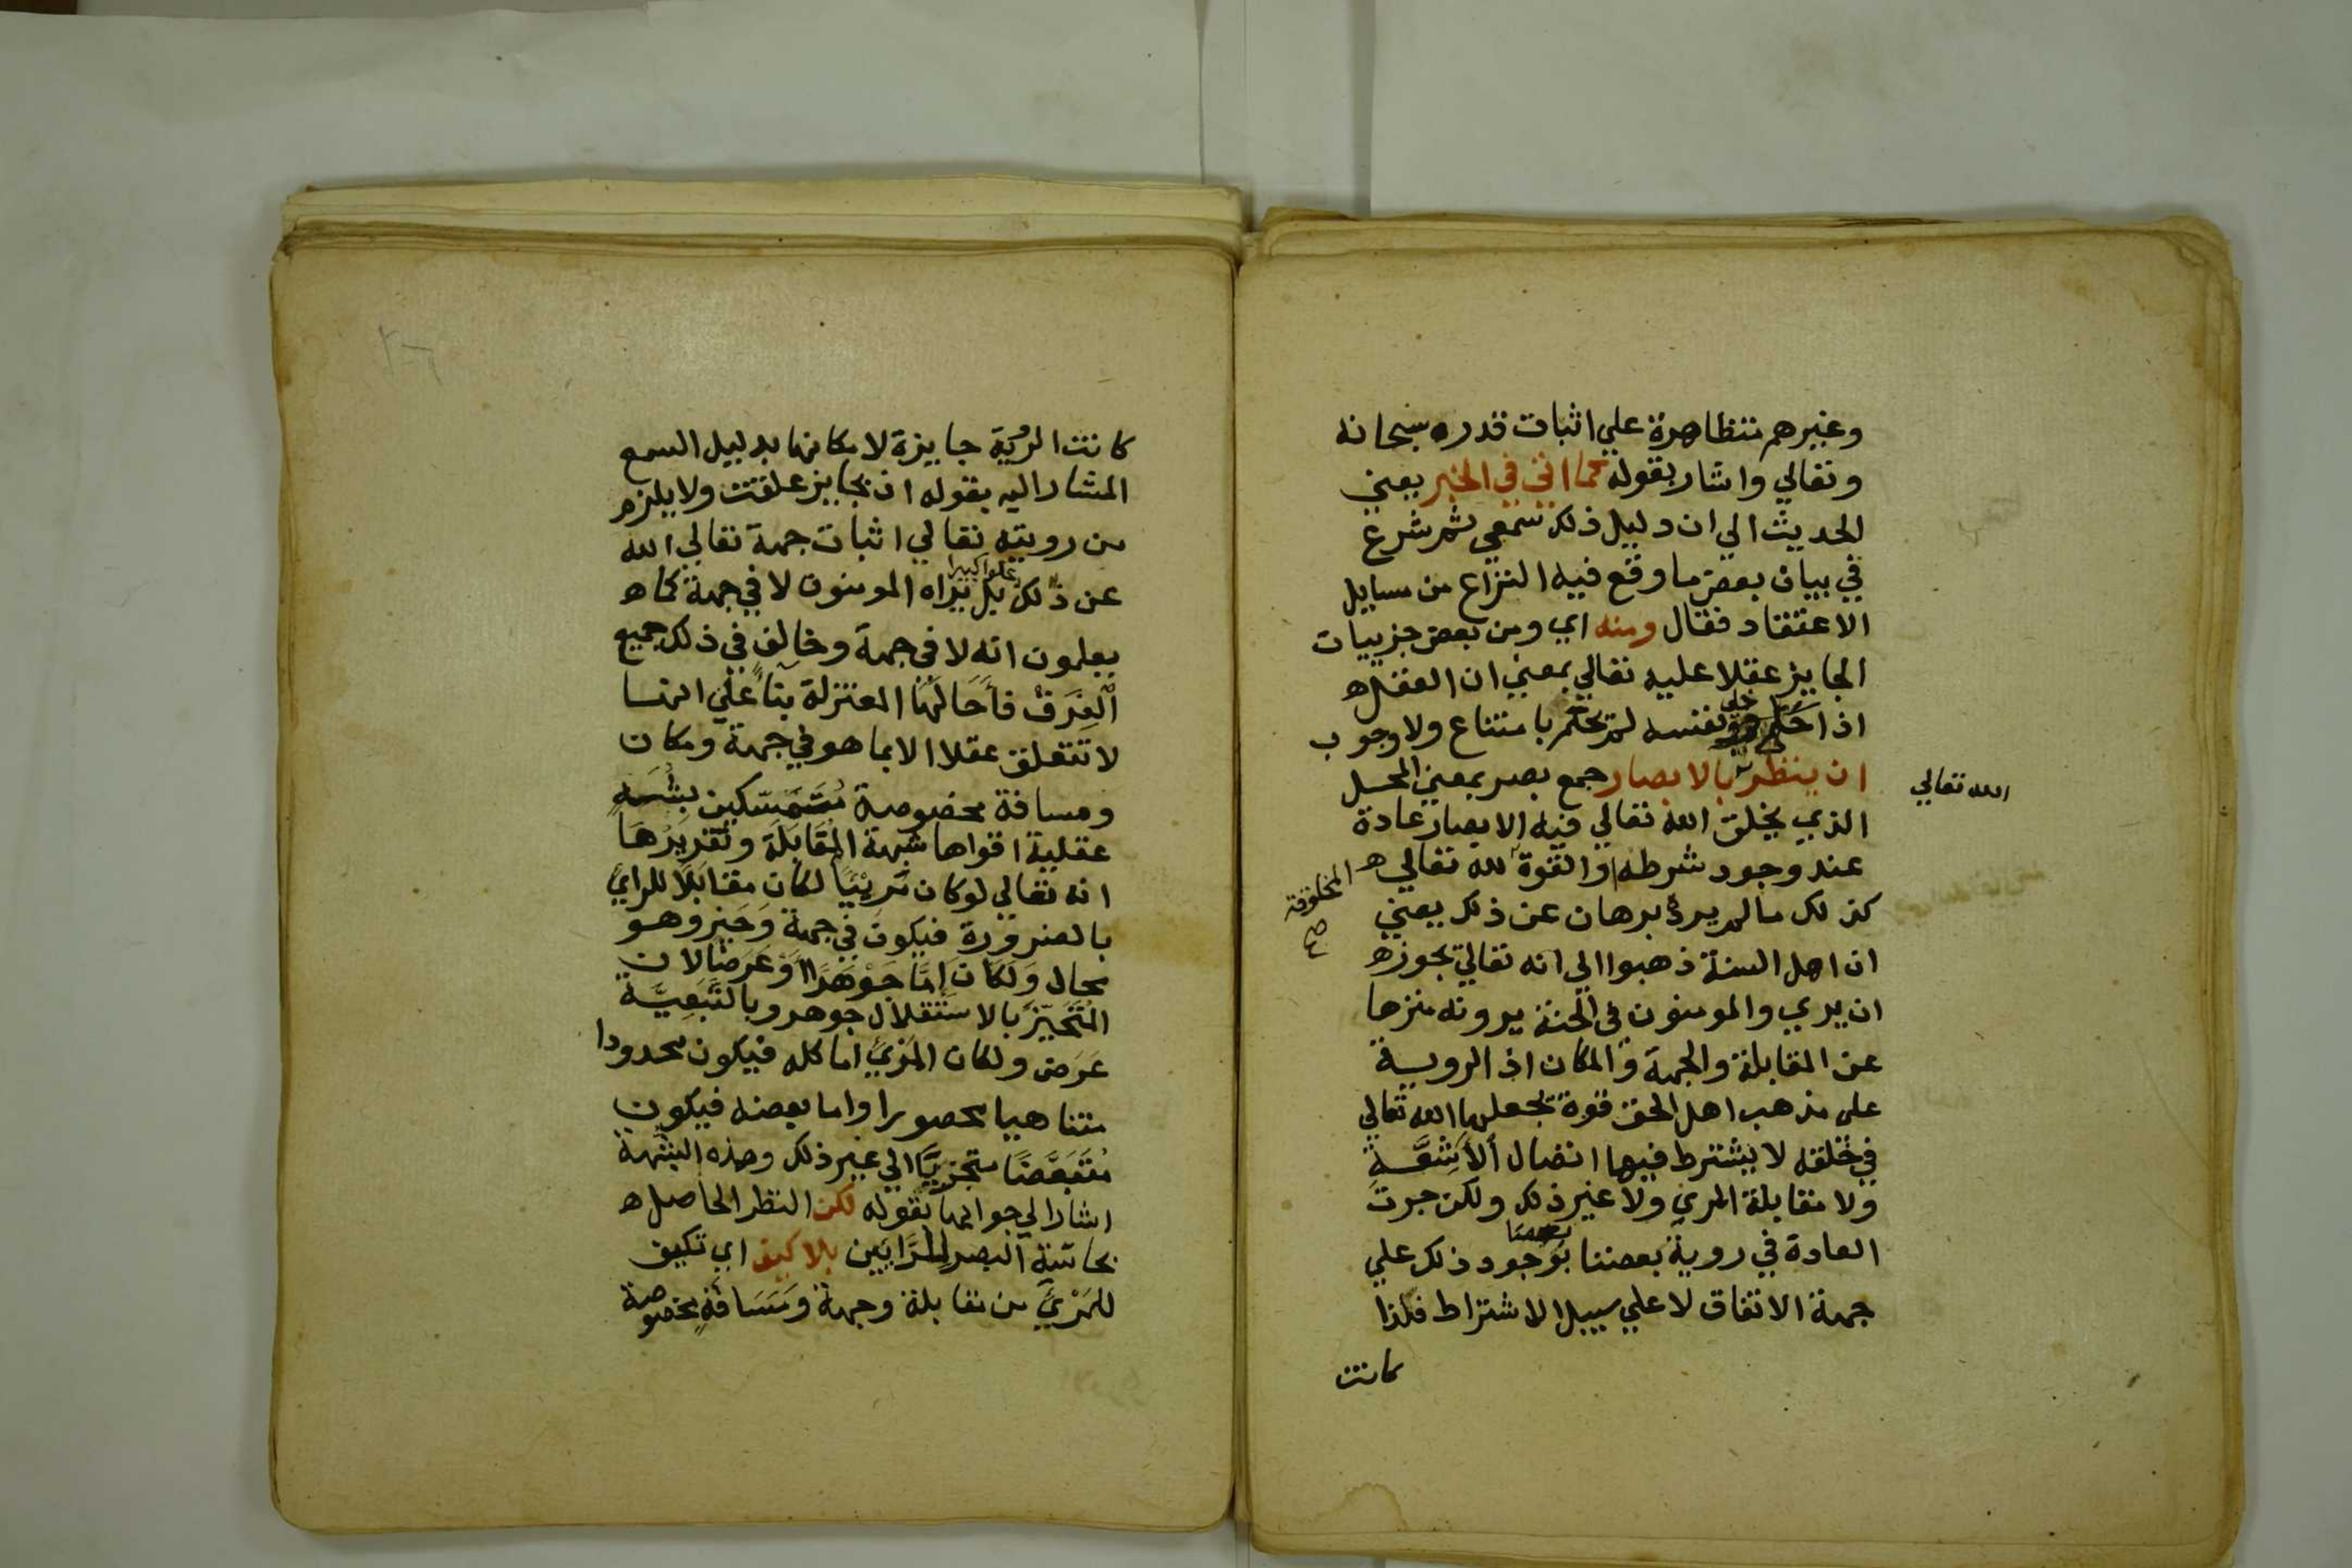 وغيرهم متظاهرة علي اثبات قدره سبحانه
وتعالي واشار بقوله كما اتي في الخبر يعني
الحديث الي ان دليل ذلك سمعي ثم شرع
في بيان بعض ما وقع فيه النزاع من مسايل
الاعتقاد فقال ومنه اي ومن بعض جزييات
الجايز عقلا عليه تعالي بمعني ان العقل ه
اذا خلي ونفسه لم يحكم بامتناع ولا وجوب
ان ينظر بالابصار جمع بصر بمعني المحل
الله تعالي
الذي يخلق الله تعالي فيه الابصار عادة
عند وجود شرطه او القوة لله تعالي ه
المخلوقة
صح
كذلك ما لم يرد برهان عن ذلك يعني
ان اهل السنة ذهبوا الي انه تعالي يجوز ه
ان يري والمومنون في الجنة يرونه منزها
عن المقابلة والجهة والمكان اذ الروية
علي مذهب اهل الحق قوة يجعلها الله تعالي
في خلقه لا يشترط فيها اتصال الأشِعَّةِ
ولا مقابلة المري ولا غير ذلك ولكن جرت
بعضنا
العادة في روية بعضنا بوجود ذلك علي
جهة الاتفاق لا علي سبيل الاشتراط فلذا
كانت
كانت الرؤية جايزة لامكانها بدليل السمع
المشار اليه بقوله اذ بجايز علقت ولا يلزم
من رويته تعالي اثبات جهة تعالي الله
علوا كبيرا
عن ذلك بل يراه المومنون لا في جهة كما ه
يعلمون انه لا في جهة وخالف في ذلك جميع
الْفِرَق فأَحَالَهَا المعتزلة بناً علي انها
لا تتعلق عقلا الا بما هو في جهة ومكان
ومسافة مخصوصة مُتَمَسّكين بشُبَهٍ
عقلية اقواها شبهة المُقَابَلَة وتَقْرِيرُهَا
انه تعالي لو كان مَرْئِيًا لكان مقابلًا للراي
بالضرورة فيكون في جهة وَحَيز وهو
محال وَلَكَان إمَّا جَوْهَرًا أَوْ عَرَضًا لان
المُتَحَيّز بالاستقلال جوهر وبالتَّبَعِيَّة
عَرَض ولكان المَرْئيُّ اما كله فيكون محدودا
متناهيا محصورا واما بعضه فيكون
مُتَبَعَّضًا متجزيًّا الي غير ذلك وهذه الشُّبهة
اشار الي جوابها بقوله لكن النظر الحاصل ه
بحاسَّة البصر للرَّايِين بلا كيف اي تكيف
للمَرْئيّ من مقابلة وجهة ومَسَافَةٍ مخصوصة